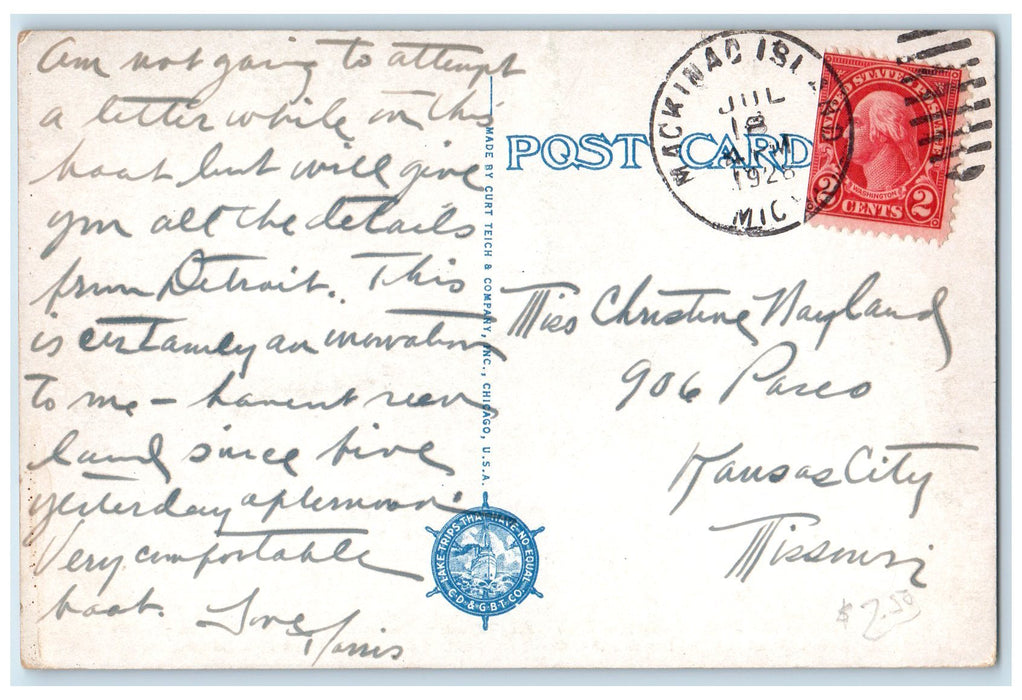 Am not going to attempt
a letter while on this
boat but will give
you all the details
from Detroit. This
is certainly an inovation
to me - havent seen
land since five
yesterday afternoon.
Very comfortable
boat. Love
Harris
MADE BY CURT TEICH & COMPANY, INC., CHICAGO, U.S.A.
LAKE-TRIPS-THAT-HAVE-NO-EQUAL
C·D·&·G·B·T·CO.
POST CARD
MACKINAC ISLAND
JUL
18
PM
1928
MICH
UNITED STATES POSTAGE
WASHINGTON
2 CENTS 2
Miss Christine Wayland
906 Paseo
Kansas City
Missouri
$7.50